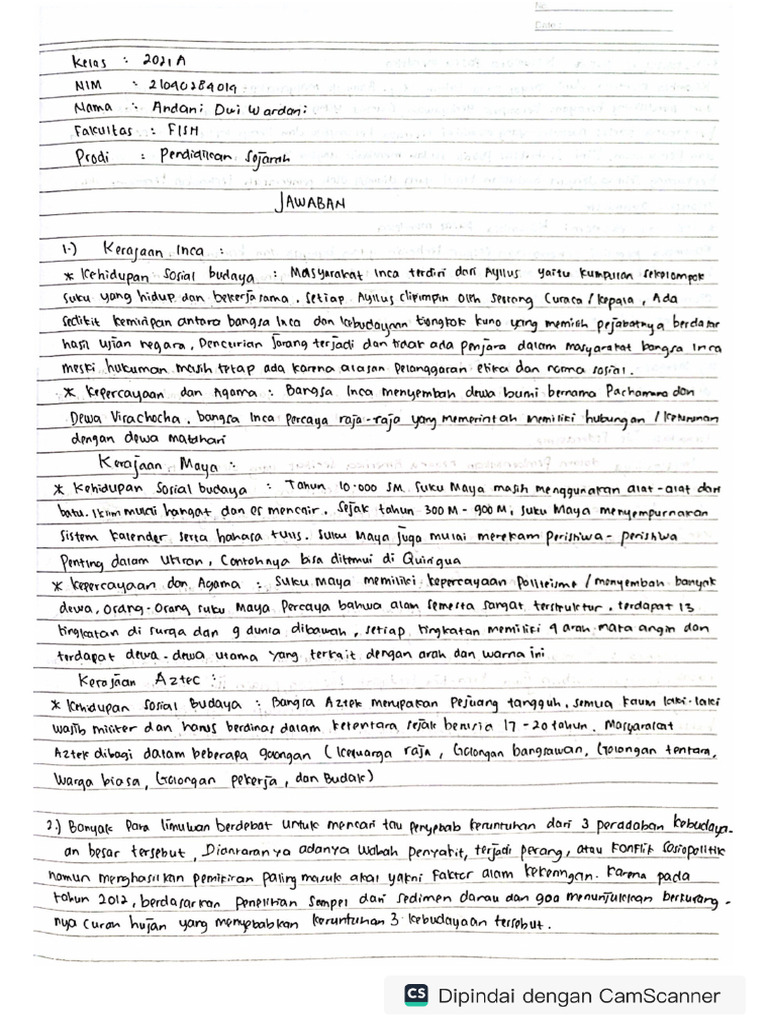 No.
Date :
Kelas : 2021 A
NIM : 21040284014
Nama : Andani Dwi Wardani
Fakultas : FISH
Prodi : Pendidikan Sejarah
JAWABAN
1.) Kerajaan Inca :
* Kehidupan Sosial budaya : Masyarakat Inca terdiri dari Ayllus yaitu kumpulan sekelompok
suku yang hidup dan bekerjasama. Setiap Ayllus dipimpin oleh seorang Curaca / kepala, Ada
sedikit kemiripan antara bangsa Inca dan kebudayaan tiongkok kuno yang memilih pejabatnya berdasar
hasil ujian negara, Pencurian Jarang terjadi dan tidak ada penjara dalam masyarakat bangsa Inca
meski hukuman masih tetap ada karena alasan Pelanggaran etika dan norma sosial.
* Kepercayaan dan Agama : Bangsa Inca menyembah dewa bumi bernama Pachamama dan
Dewa Virachocha, bangsa Inca Percaya raja-raja yang memerintah memiliki hubungan / keturunan
dengan dewa matahari
Kerajaan Maya :
* Kehidupan Sosial budaya : Tahun 10.000 SM Suku Maya masih menggunakan alat-alat dari
batu. Iklim mulai hangat dan es mencair. Sejak tahun 300 M - 900 M, Suku Maya menyempurnakan
sistem kalender serta bahasa tulis. Suku Maya juga mulai merekam peristiwa - peristiwa
Penting dalam ukiran, Contohnya bisa ditemui di Quirigua
* Kepercayaan dan Agama : Suku Maya memiliki kepercayaan Politeisme / menyembah banyak
dewa, Orang-Orang suku Maya Percaya bahwa alam semesta sangat terstruktur, terdapat 13
tingkatan di surga dan 9 dunia dibawah, setiap tingkatan memiliki 4 arah mata angin dan
terdapat dewa-dewa utama yang terkait dengan arah dan warna ini
Kerajaan Aztec :
* Kehidupan Sosial Budaya : Bangsa Aztek merupakan Pejuang tangguh, semua kaum laki-laki
wajib militer dan harus berdinas dalam ketentara sejak berusia 17 - 20 tahun. Masyarakat
Aztek dibagi dalam beberapa goongan (Keluarga raja, Golongan bangsawan, Golongan tentara,
Warga biasa, Golongan pekerja, dan Budak)
2.) Banyak Para Ilmuwan berdebat untuk mencari tau penyebab keruntuhan dari 3 peradaban kebudaya-
an besar tersebut, Diantaranya adanya Wabah Penyakit, terjadi perang, atau konflik Sosiopolitik
namun menghasilkan pemikiran paling masuk akal yakni Faktor alam kekeringan. Karena pada
tahun 2012, berdasarkan Penelitian Sampel dari sedimen danau dan goa menunjukkan berkurang-
nya curah hujan yang menyebabkan keruntuhan 3 kebudayaan tersebut.
CS Dipindai dengan CamScanner